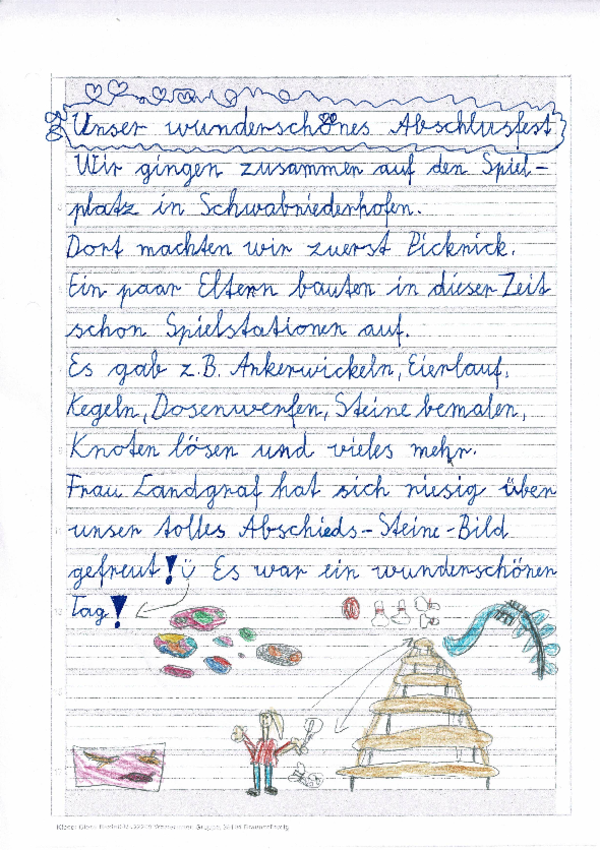 Unser wunderschönes Abschlusfest
Wir gingen zusammen auf den Spiel-
platz in Schwabniederhofen.
Dort machten wir zuerst Picknick.
Ein paar Eltern bauten in dieser Zeit
schon Spielstationen auf.
Es gab z.B. Ankerwickeln, Eierlauf,
Kegeln, Dosenwerfen, Steine bemalen,
Knoten lösen und vieles mehr.
Frau Landgraf hat sich riesig über
unser tolles Abschieds-Steine-Bild
gefreut! Es war ein wunderschönen
Tag!